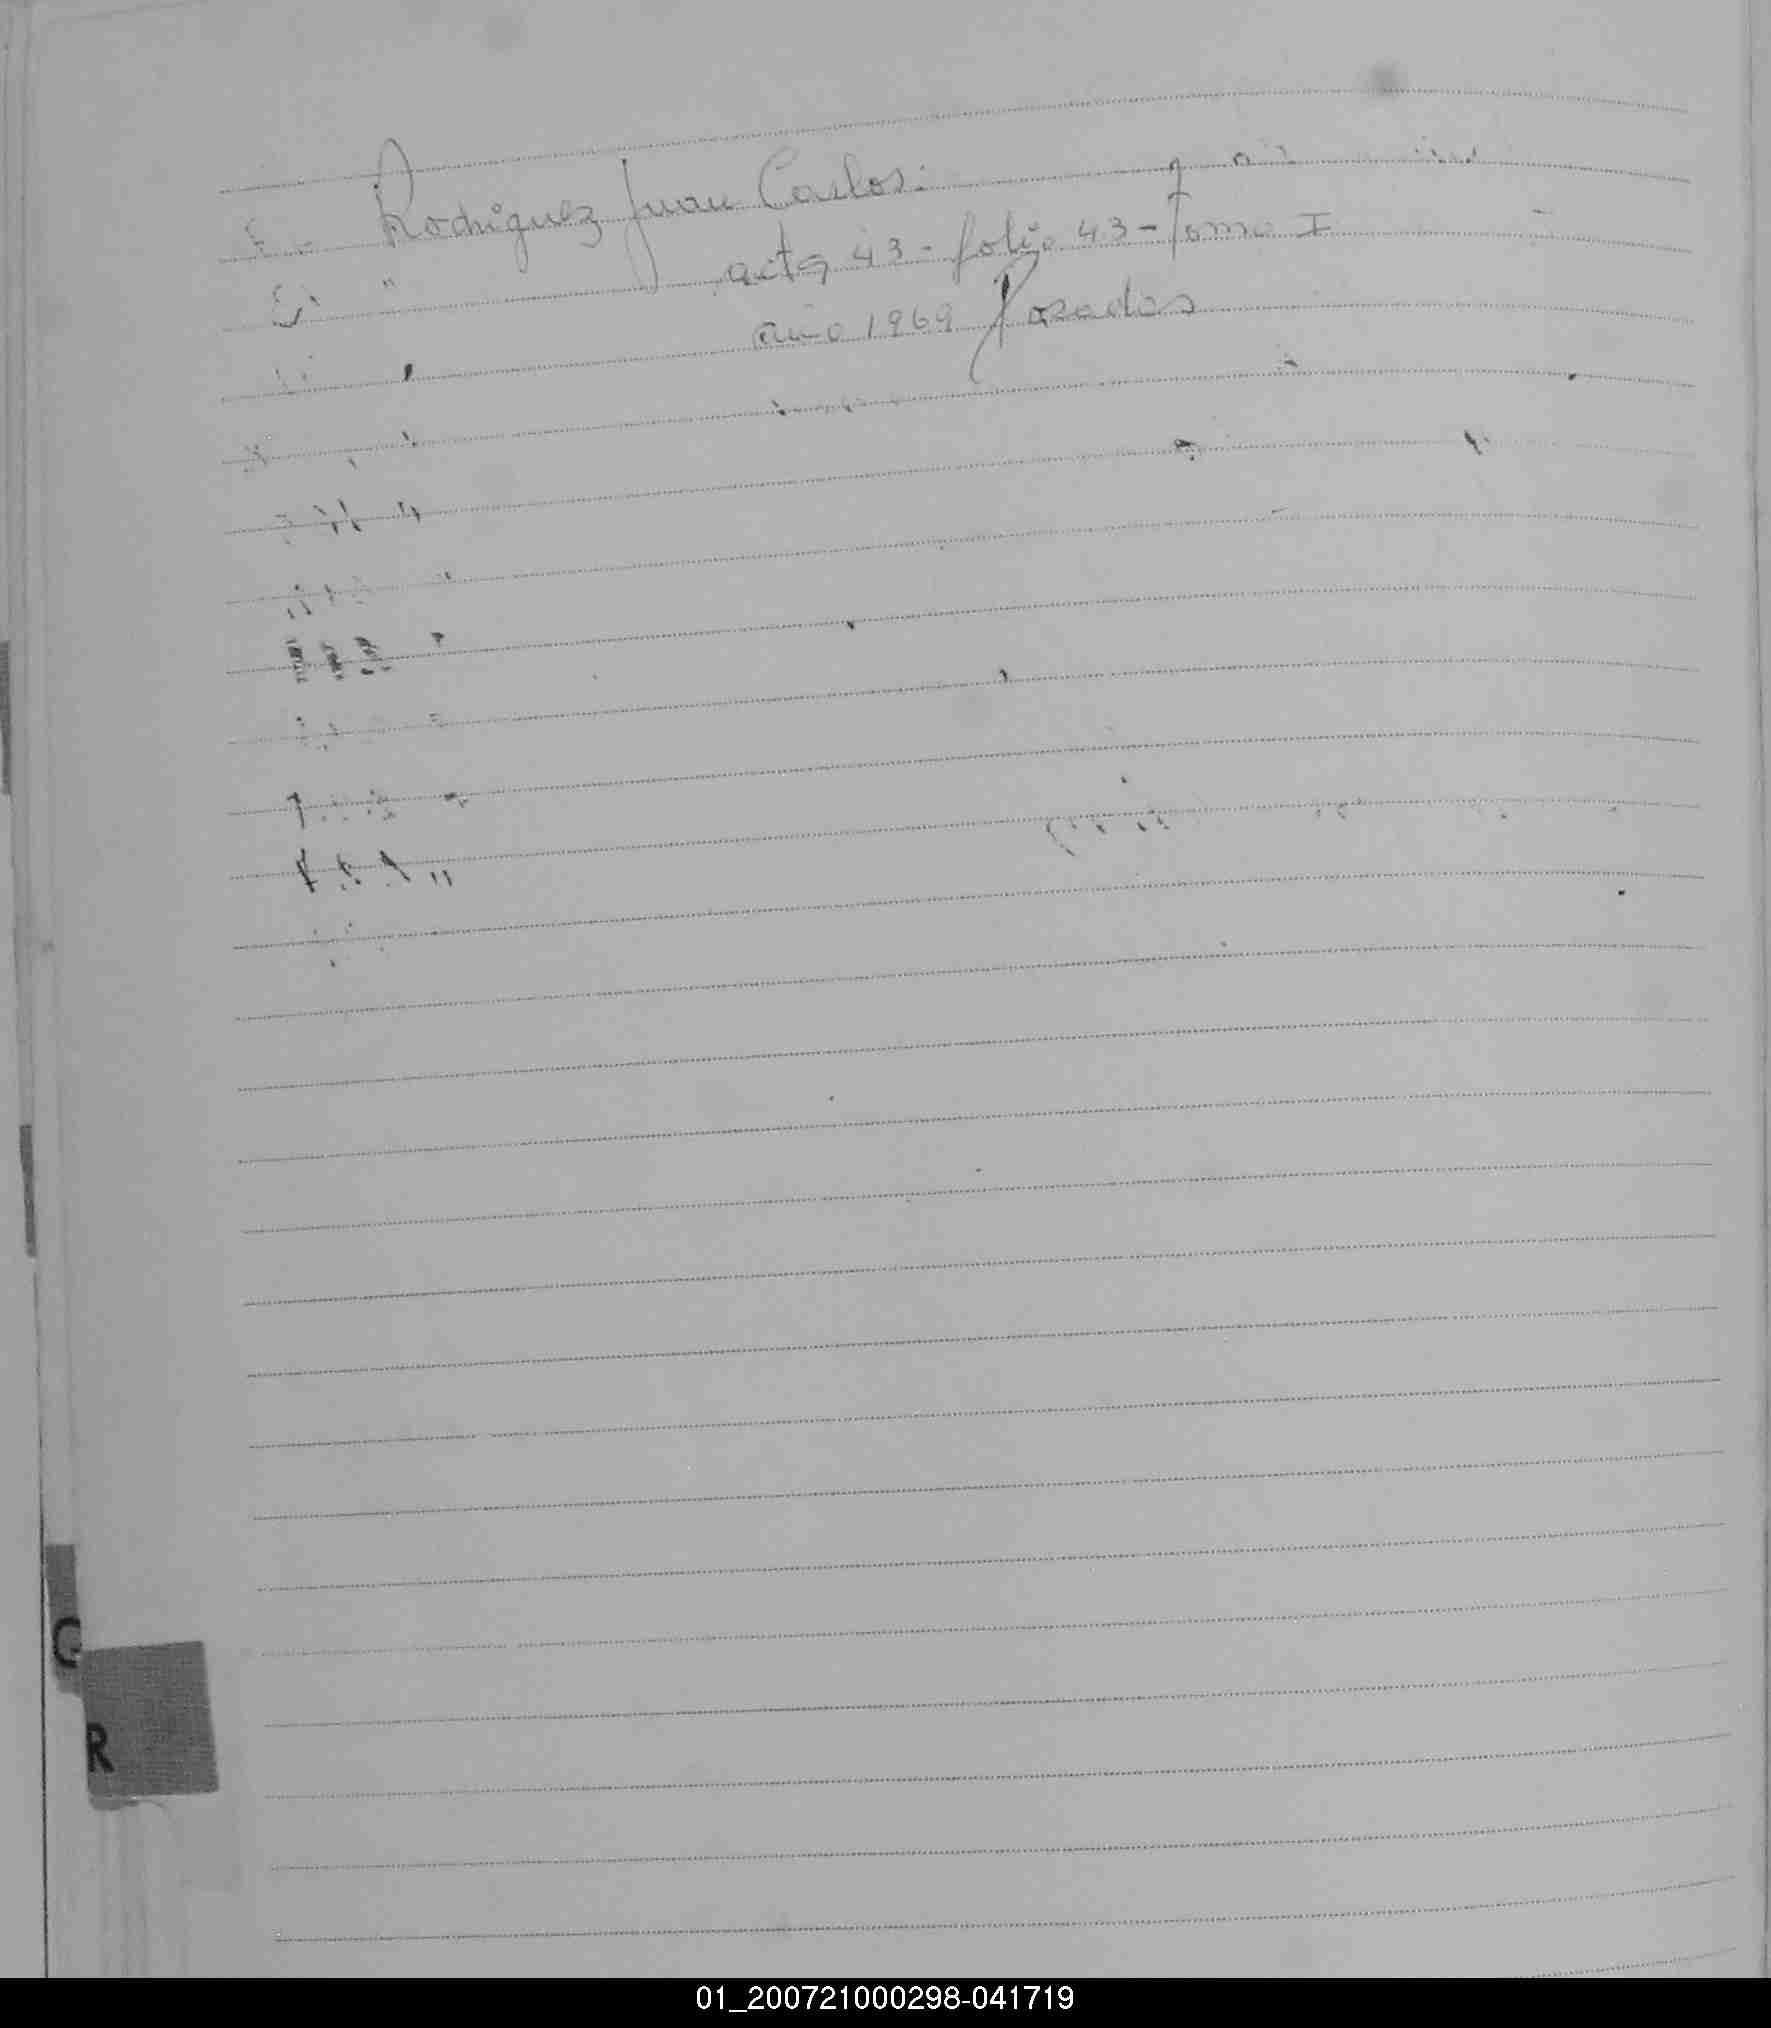 Rodriguez Juan Carlos:
acta 43 - folio 43 - Tomo I
año 1969 Posadas
G
R
01_200721000298-041719